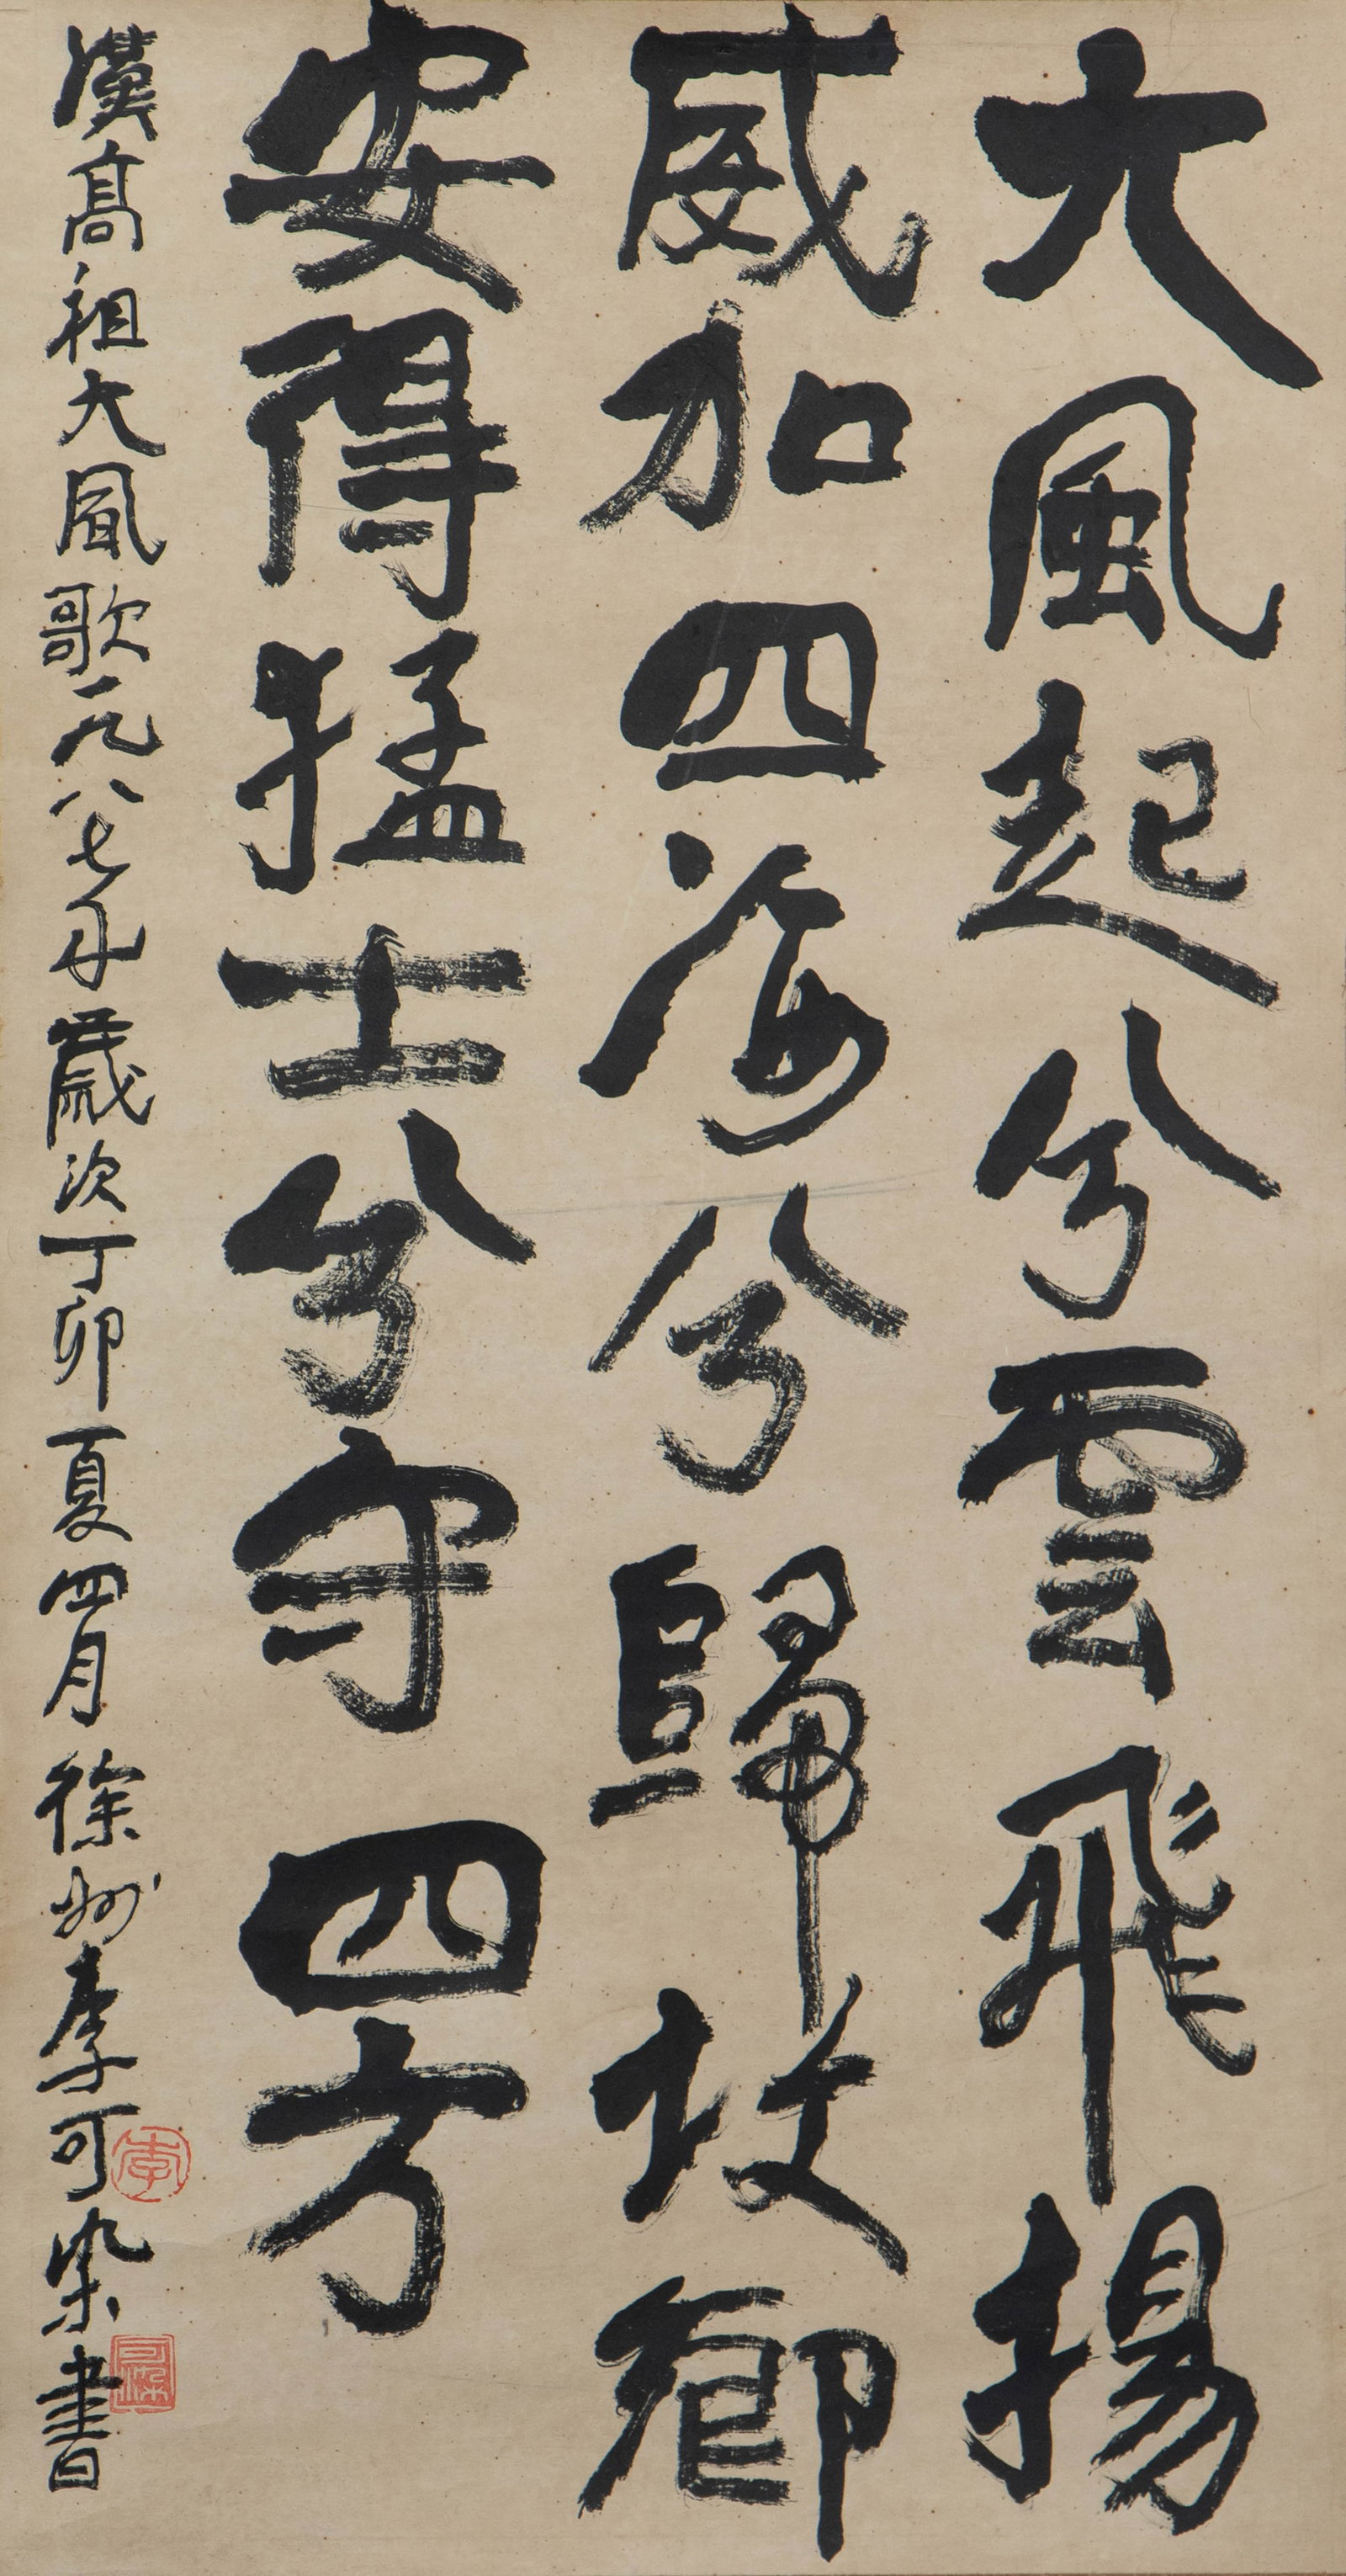 大風起兮雲飛揚
威加四海兮歸故鄉
安得猛士兮守四方
漢高祖大風歌一九八七年歲次丁卯夏四月徐州李可染書
李
可染